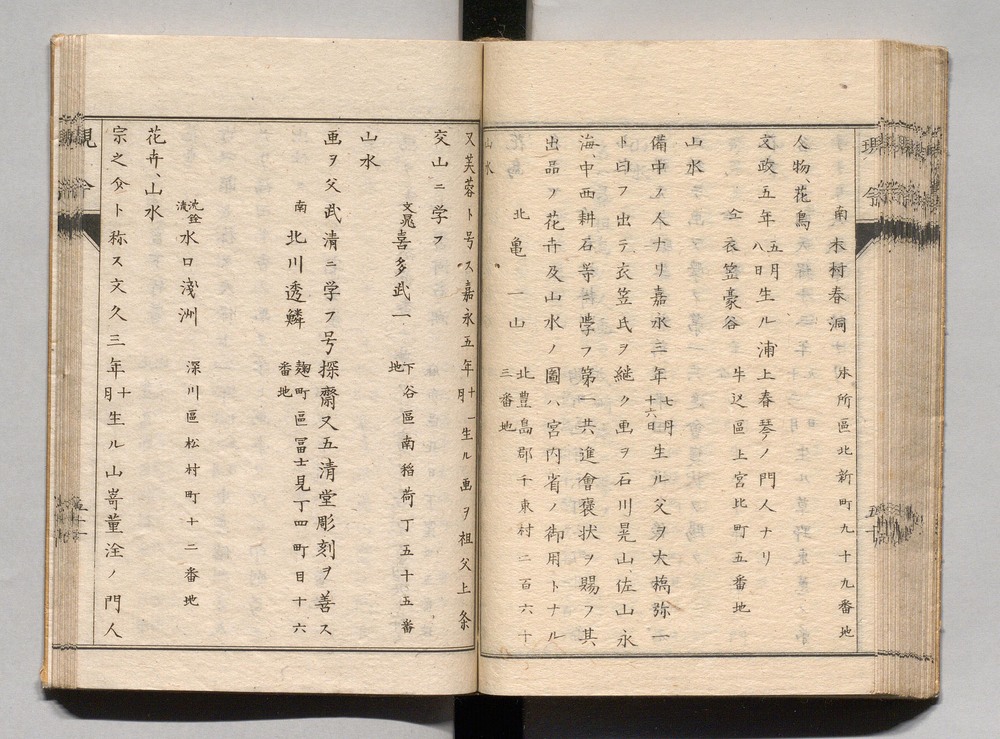 南 木村春洞 本所區北新町九十九番地
人物、花鳥
文政五年五月八日生ル浦上春琴ノ門人ナリ
仝 衣笠豪谷 牛込區上宮比町五番地
山水
備中ノ人ナリ嘉永三年七月十六日生ル父ヲ大橋弥一
ト曰フ出テ衣笠氏ヲ継ク画ヲ石川晃山、佐山永
海、中西耕石等ニ學フ第一共進會褒状ヲ賜フ其
出品ノ花卉及山水ノ圖ハ宮内省ノ御用トナル
北 亀一山 北豊島郡千束村二百六十三番地
山水
又芙蓉ト号ス嘉永五年十一月生ル画ヲ祖父上条
交山ニ学フ
文晁 喜多武一 下谷區南稲荷丁五十五番地
山水
画ヲ父武清ニ学フ号探齋又五清堂彫刻ヲ善ス
南 北川透鱗 麹町區冨士見丁四町目十六番地
沈銓流 水口淺洲 深川區松村町十二番地
花卉、山水
宗之仝ト称ス文久三年十月生ル山嵜董洤ノ門人